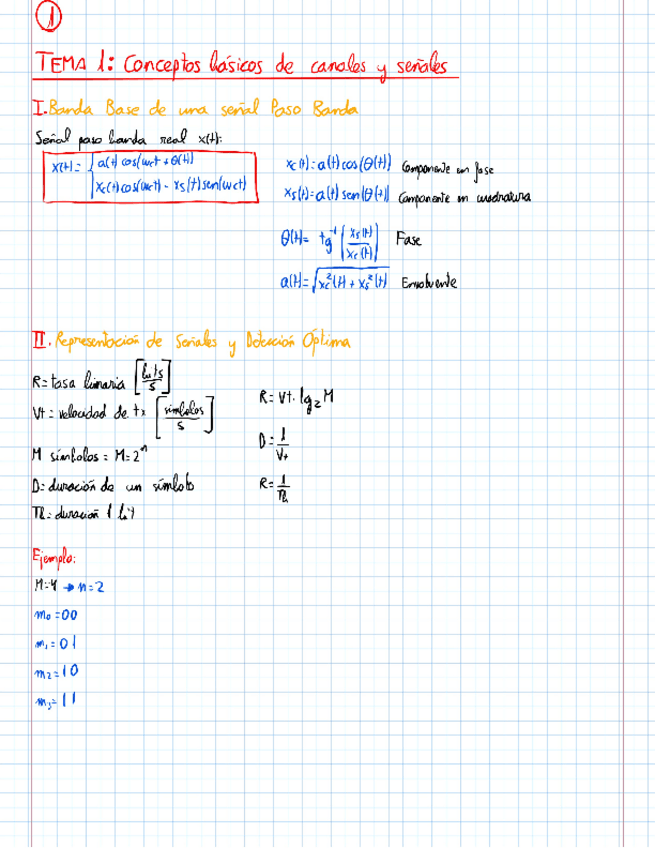 1
TEMA 1: Conceptos básicos de canales y señales
I. Banda Base de una señal Paso Banda
Señal paso banda real x(t):
x(t) = { a(t) cos(ωct + θ(t))
xc(t) cos(ωct) - xs(t) sen(ωct)
xc(t) = a(t) cos(θ(t)) Componente en fase
xs(t) = a(t) sen(θ(t)) Componente en cuadratura
θ(t) = tg⁻¹ (xs(t) / xc(t)) Fase
a(t) = √(xc²(t) + xs²(t)) Envolvente
II. Representación de Señales y Detección Óptima
R = tasa binaria [bits/s]
Vt = velocidad de tx [símbolos/s]
M símbolos = M = 2ⁿ
D = duración de un símbolo
Tb = duración 1 bit
R = Vt · lg₂ M
D = 1/Vt
R = 1/Tb
Ejemplo:
M = 4 → n = 2
m₀ = 00
m₁ = 01
m₂ = 10
m₃ = 11